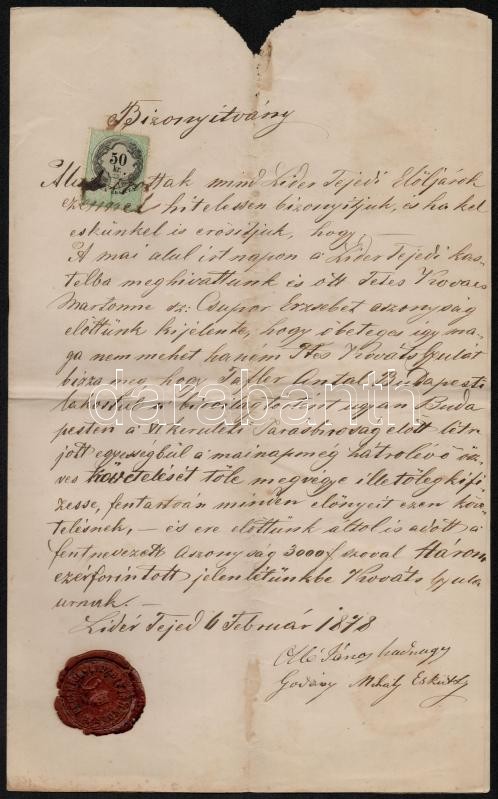 Bizonyitvány
50
kr.
mind Lidér Tejedi Elöljárok
ezennel hitelessen bizonyitjuk, és ha kel
eskünkel is erösitjük, hogy, —
A mai alul irt napon a Lidér Tejedi kas-
télba meghivattunk és ott Tetes Kovacs
Martonne sz: Csupor Erzsebet aszonyság
elöttünk kijelente, hogy ö beteges igy ma-
ga nem mehet haném Ttes Kováts Gyulát
bizza meg, hogy Antal Budapesti
ugyan Buda
pesten a VI kerületi Jarasbiroság elött létre
jött egyességbül a mai napomég hátrolévö ösz-
ves követelését töle megvégye illetöleg kifi-
zesse, fentartván minden elönyeit ezen köve-
telésnek, — és ere elöttünk altol is adott a
fentnevezett aszonyság 3000 f szoval Három
ezérforintott jelenlétünkbe Kováts Gyula
urnak. —
Lidér Tejed 6 Február 1878
János hadnagy
Mihaly Esküdt
darabanth